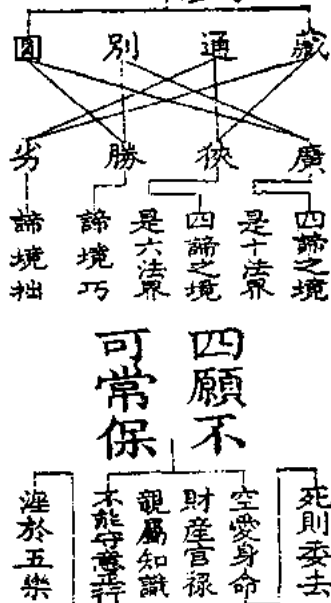 藏
通
別
圓
廣
狹
勝
劣
四諦之境
是十法界
四諦之境
是六法界
諦境巧
諦境拙
四願不
可常保
死則委去
空愛身命
財產官祿
親屬知識
不能守善正行
婬於五樂